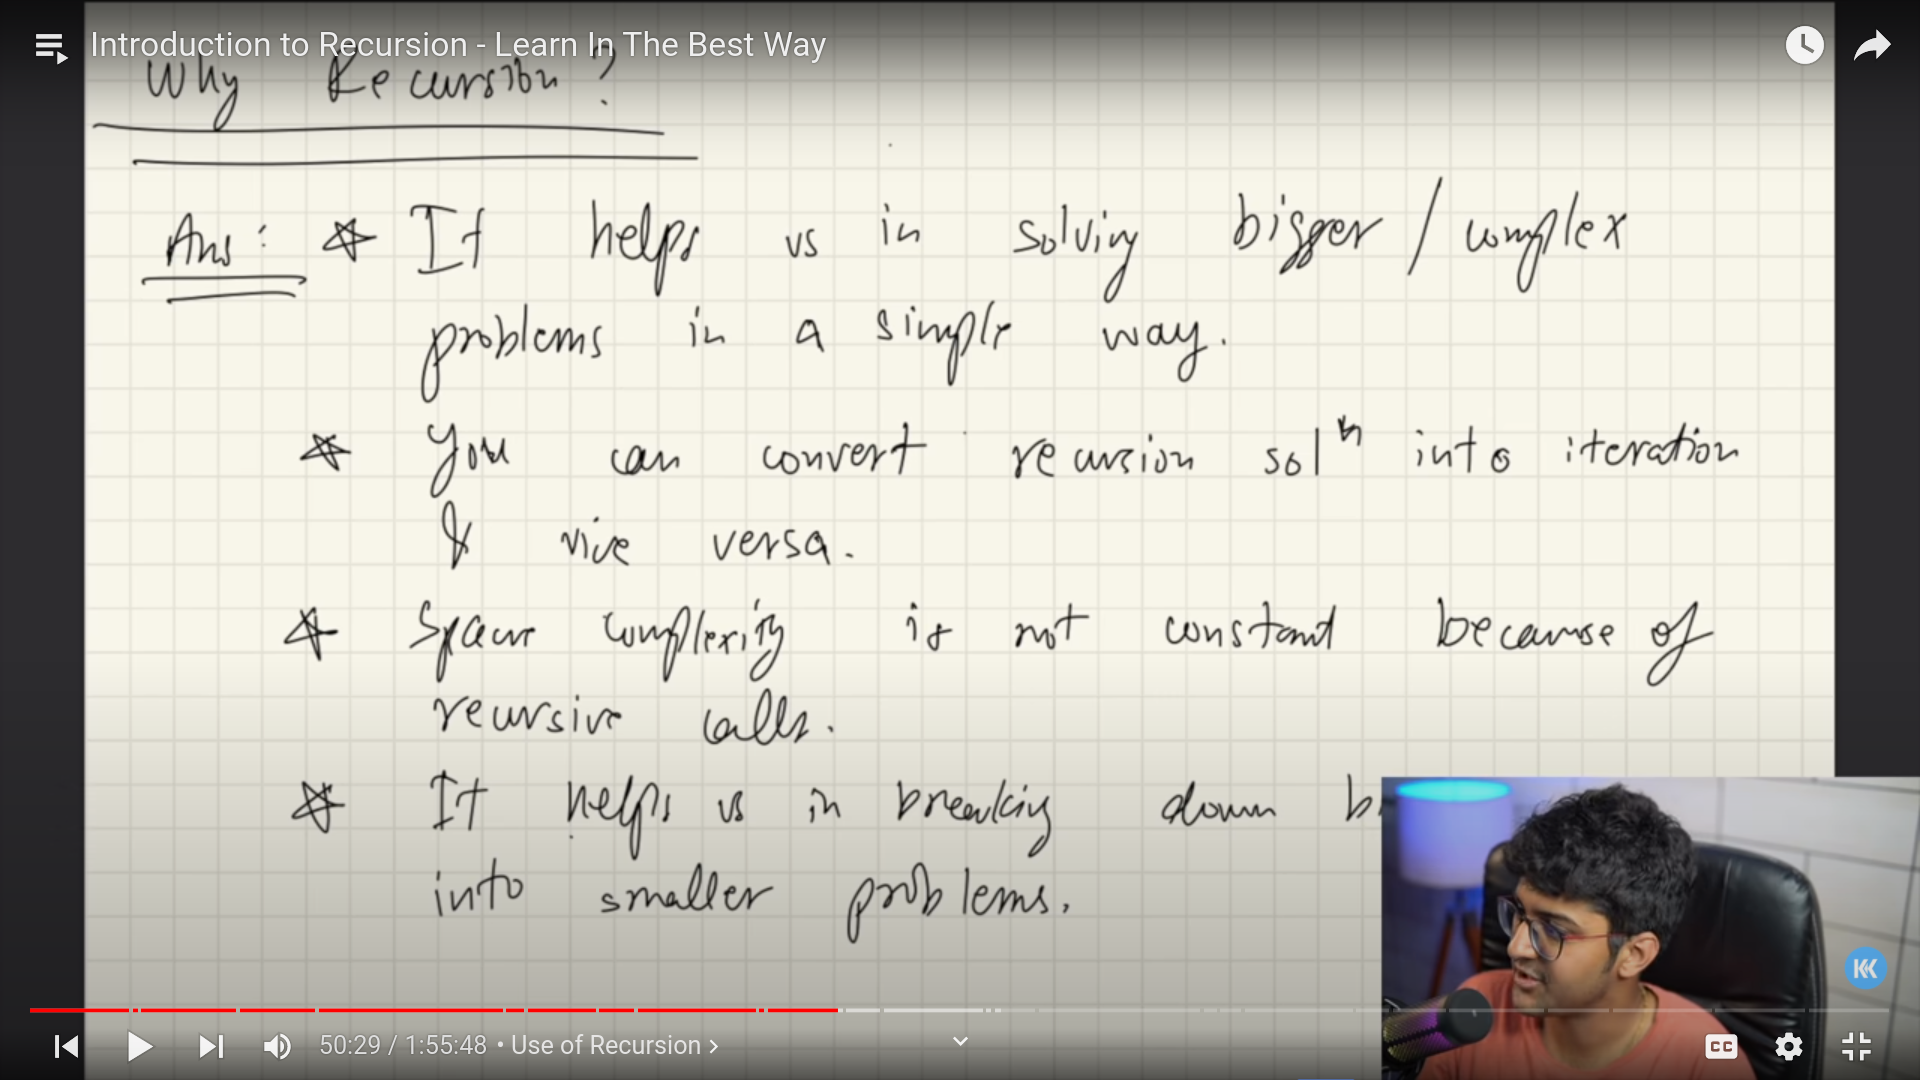 Introduction to Recursion - Learn In The Best Way
Why Recursion?
Ans: It helps us in solving bigger / complex
problems in a simple way.
You can convert recursion solⁿ into iteration
& vice versa.
Space complexity is not constant because of
recursive calls.
It helps us in breaking down
into smaller problems.
50:29 / 1:55:48 • Use of Recursion
CC